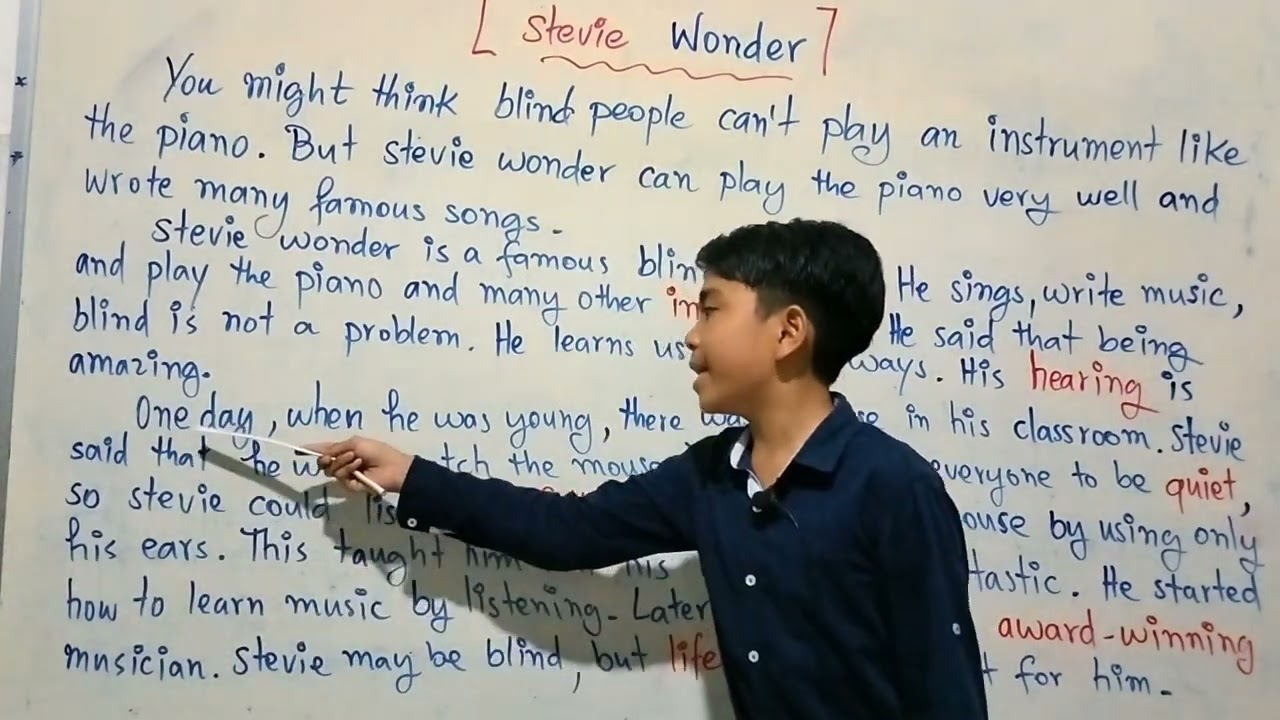 [ Stevie Wonder ]
You might think blind people can't play an instrument like
the piano. But stevie wonder can play the piano very well and
wrote many famous songs.
Stevie wonder is a famous blin He sings, write music,
and play the piano and many other in He said that being
blind is not a problem. He learns us ways. His hearing is
amazing.
One day, when he was young, there wa in his classroom. Stevie
said that he tch the mouse everyone to be quiet,
so stevie could lis ouse by using only
his ears. This taught him his tastic. He started
how to learn music by listening. Later award-winning
musician. Stevie may be blind, but life for him.